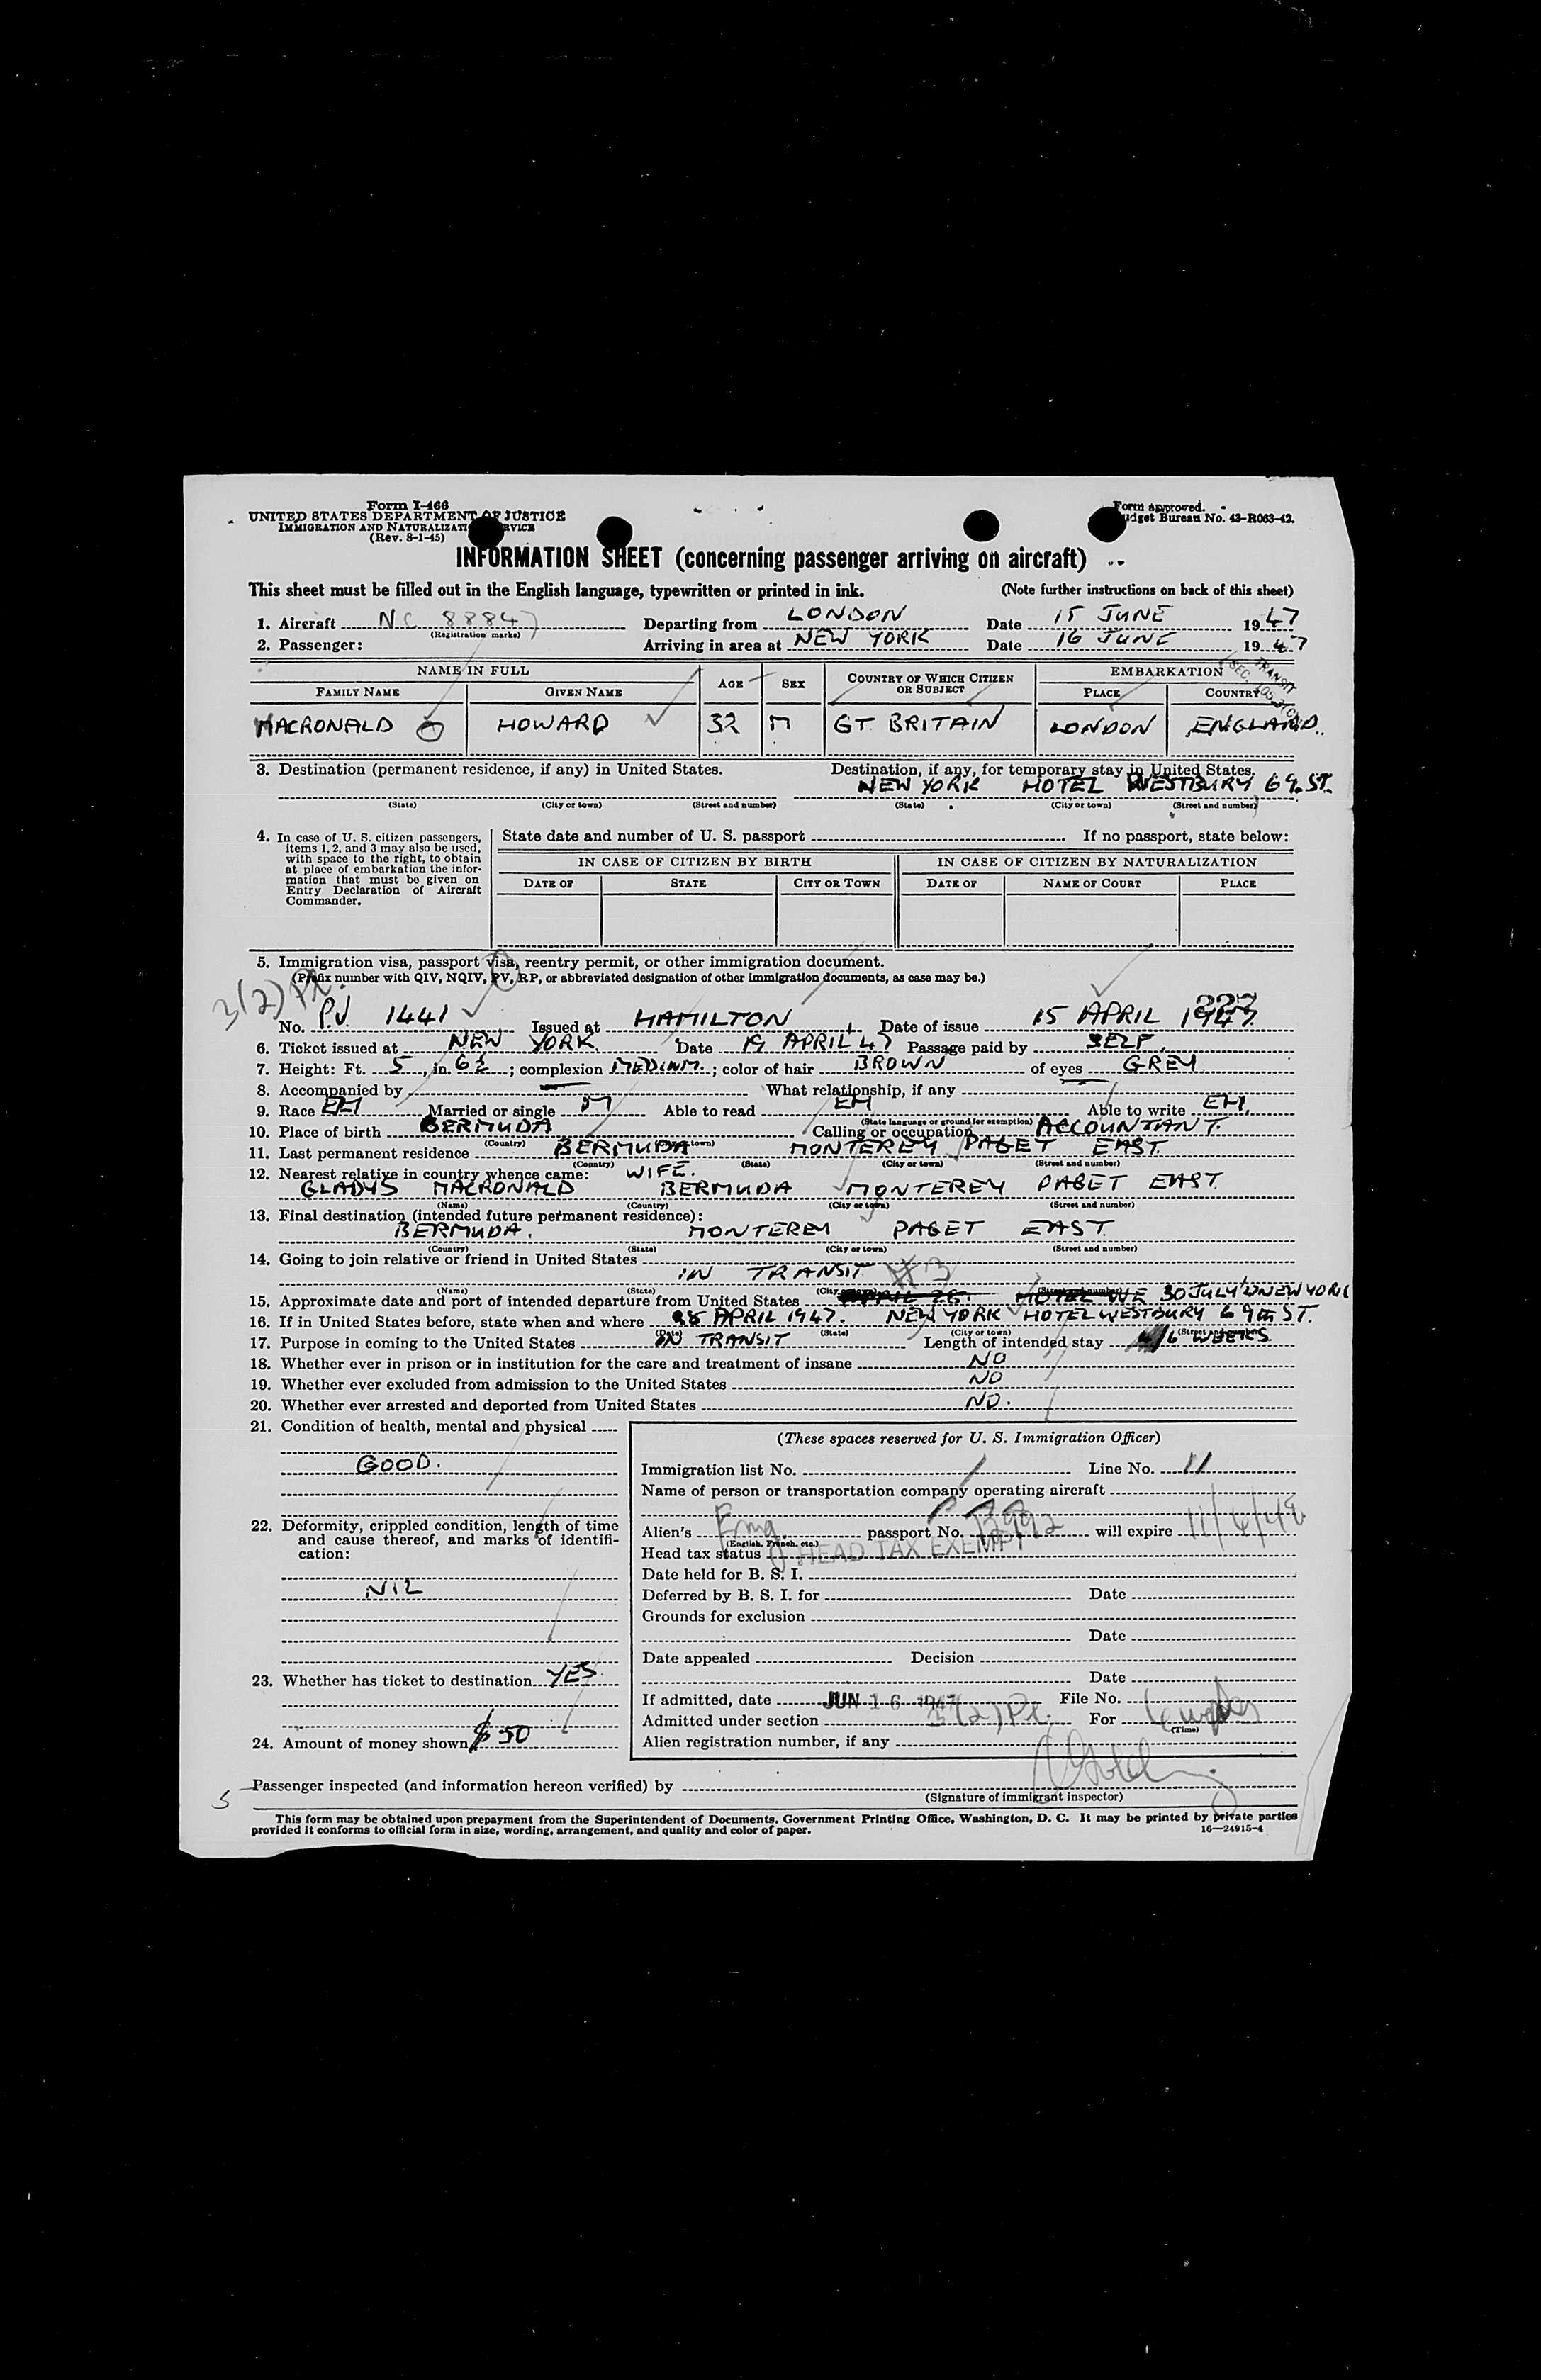 Form I-466
UNITED STATES DEPARTMENT OF JUSTICE
IMMIGRATION AND NATURALIZATION SERVICE
(Rev. 8-1-45)
Form approved.
Budget Bureau No. 43-R063-42.
INFORMATION SHEET (concerning passenger arriving on aircraft)
This sheet must be filled out in the English language, typewritten or printed in ink. (Note further instructions on back of this sheet)
1. Aircraft NC 88847 (Registration marks) Departing from LONDON Date 15 JUNE 1947
2. Passenger: Arriving in area at NEW YORK Date 16 JUNE 1947
TRANSIT
NAME IN FULL AGE SEX COUNTRY OF WHICH CITIZEN OR SUBJECT EMBARKATION
FAMILY NAME GIVEN NAME PLACE COUNTRY
MACRONALD HOWARD 32 M GT BRITAIN LONDON ENGLAND.
3. Destination (permanent residence, if any) in United States. Destination, if any, for temporary stay in United States.
NEW YORK HOTEL WESTBURY 69. ST.
(State) (City or town) (Street and number) (State) (City or town) (Street and number)
4. In case of U. S. citizen passengers, items 1, 2, and 3 may also be used, with space to the right, to obtain at place of embarkation the information that must be given on Entry Declaration of Aircraft Commander.
State date and number of U. S. passport If no passport, state below:
IN CASE OF CITIZEN BY BIRTH IN CASE OF CITIZEN BY NATURALIZATION
DATE OF STATE CITY OR TOWN DATE OF NAME OF COURT PLACE
5. Immigration visa, passport visa, reentry permit, or other immigration document.
(Prefix number with QIV, NQIV, PV, RP, or abbreviated designation of other immigration documents, as case may be.)
3(2) Pt.
227
No. P.V. 1441 Issued at HAMILTON Date of issue 15 APRIL 1947
6. Ticket issued at NEW YORK Date 19 APRIL 47 Passage paid by SELF.
7. Height: Ft. 5, in. 6½; complexion MEDIUM.; color of hair BROWN of eyes GREY
8. Accompanied by — What relationship, if any
9. Race EM Married or single M Able to read EM Able to write EM.
(State language or ground for exemption)
10. Place of birth BERMUDA Calling or occupation ACCOUNTANT.
(Country) (City or town)
11. Last permanent residence BERMUDA MONTEREY PAGET EAST.
(Country) (State) (City or town) (Street and number)
12. Nearest relative in country whence came: WIFE.
GLADYS MACRONALD BERMUDA MONTEREY PAGET EAST.
(Name) (Country) (City or town) (Street and number)
13. Final destination (intended future permanent residence):
BERMUDA. MONTEREY PAGET EAST.
(Country) (State) (City or town) (Street and number)
14. Going to join relative or friend in United States
IN TRANSIT #3
(Name) (State) (City or town) (Street and number)
15. Approximate date and port of intended departure from United States APRIL 26. HOTEL WE 30 JULY NEW YORK
16. If in United States before, state when and where 25 APRIL 1947. NEW YORK HOTEL WESTBURY 69TH ST.
(Date) (State) (City or town) (Street and number)
17. Purpose in coming to the United States IN TRANSIT Length of intended stay 6 WEEKS
18. Whether ever in prison or in institution for the care and treatment of insane NO
19. Whether ever excluded from admission to the United States NO
20. Whether ever arrested and deported from United States NO.
21. Condition of health, mental and physical
GOOD.
22. Deformity, crippled condition, length of time and cause thereof, and marks of identification:
NIL
23. Whether has ticket to destination YES
24. Amount of money shown $50
(These spaces reserved for U. S. Immigration Officer)
Immigration list No. 1 Line No. 11
Name of person or transportation company operating aircraft
Alien's Eng. passport No. 12992 will expire 11/4/48
(English, French, etc.)
Head tax status HEAD TAX EXEMPT
Date held for B. S. I.
Deferred by B. S. I. for Date
Grounds for exclusion
Date
Date appealed Decision
Date
If admitted, date JUN 16 1947 File No.
Admitted under section 3(2) Pt. For 6 weeks
(Time)
Alien registration number, if any
5
Passenger inspected (and information hereon verified) by
(Signature of immigrant inspector)
This form may be obtained upon prepayment from the Superintendent of Documents, Government Printing Office, Washington, D. C. It may be printed by private parties
provided it conforms to official form in size, wording, arrangement, and quality and color of paper. 16—24915-4